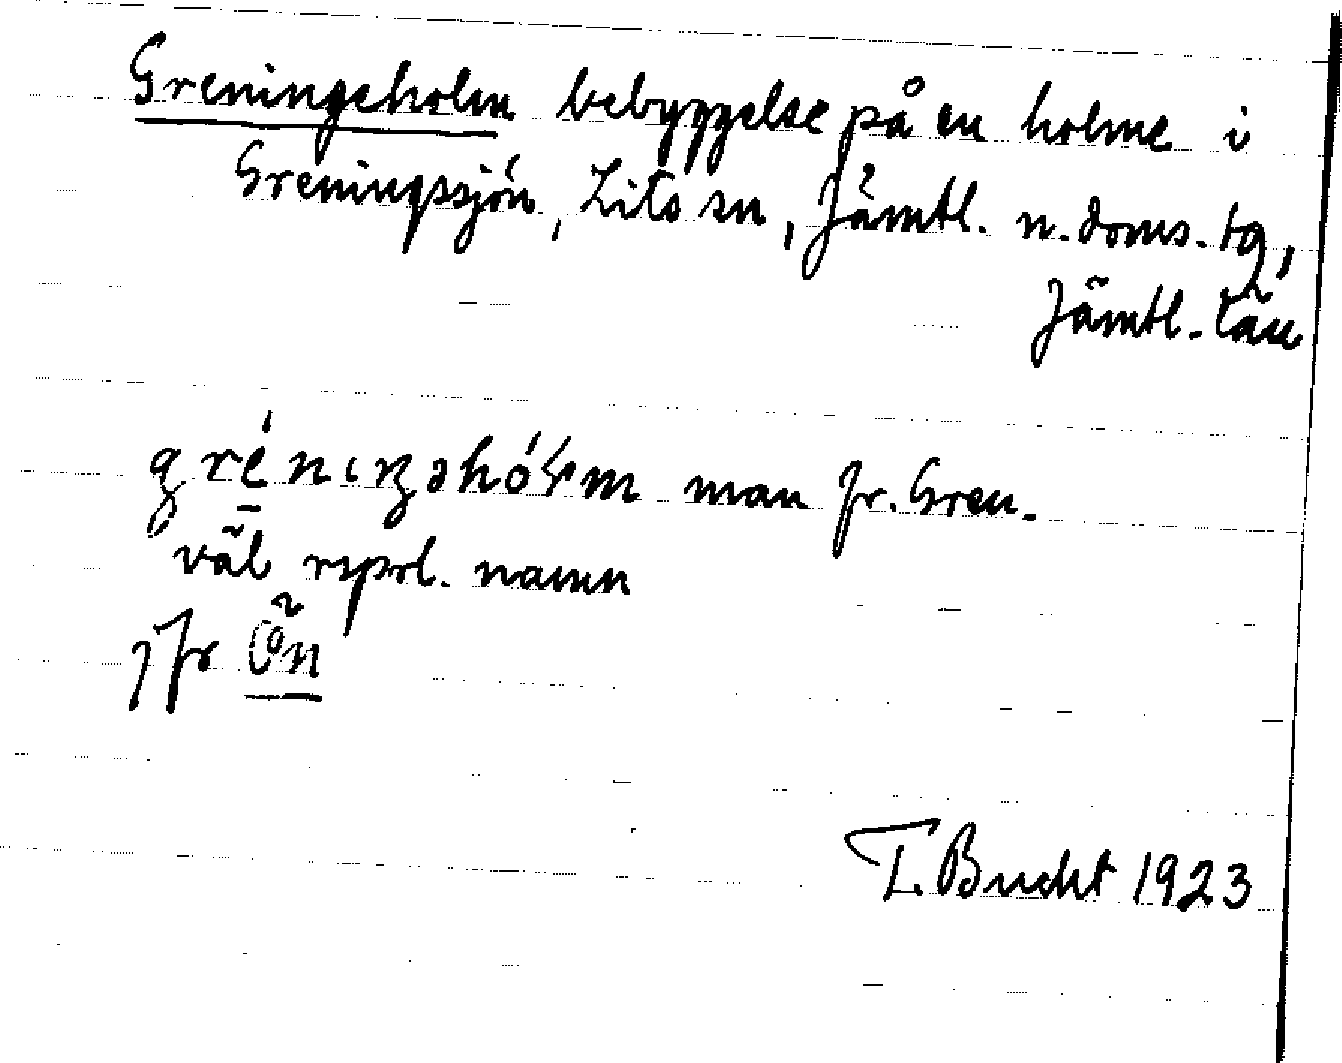 Greningeholm bebyggelse på en holme i
Greningssjön, Lits sn, Jämtl. n. doms. tg,
Jämtl. län
man fr. Gren.
väl rsprl. namn
jfr Ön
T. Bucht 1923